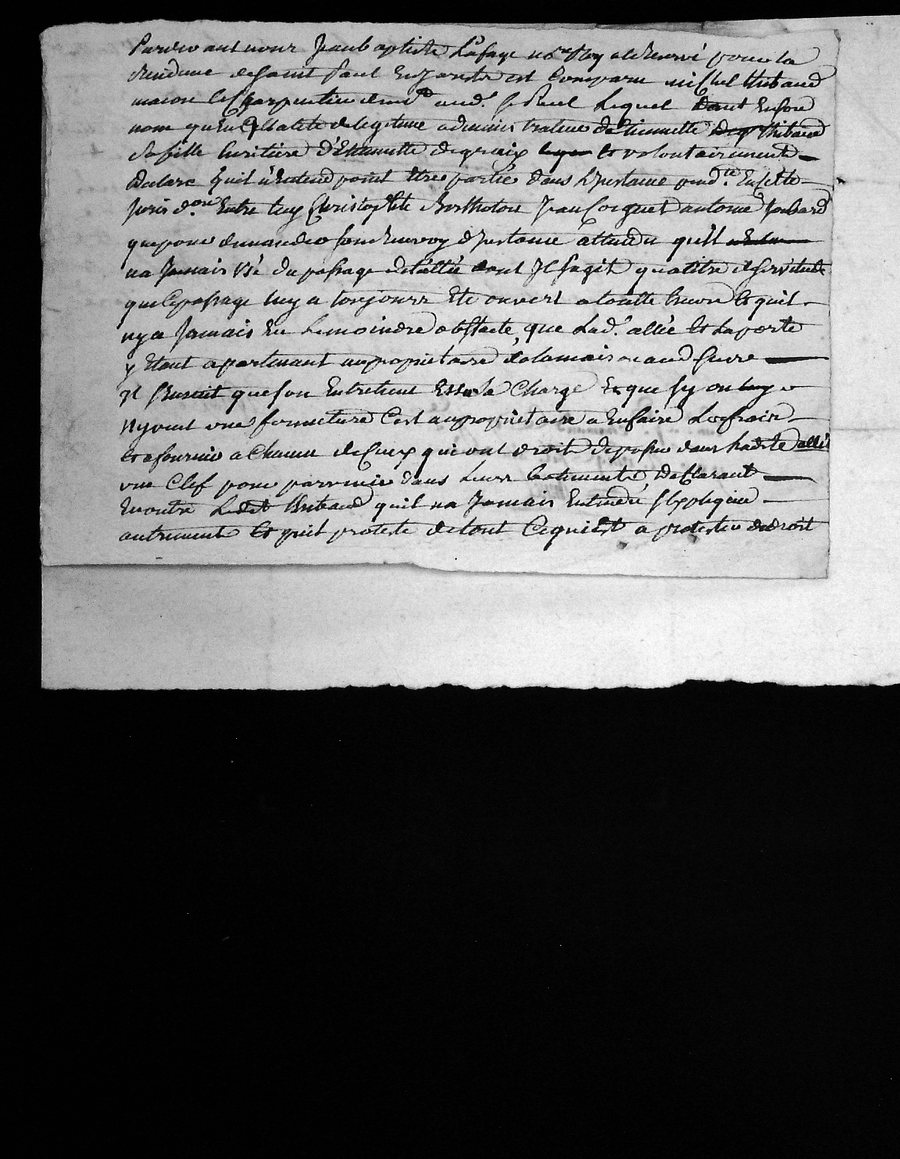 Pardevant nous Jean baptiste Lafaye no.re Roy al reservé pour la
residance de saint Paul En Jarests est Comparu michel thibaud
masson et Charpentier dem.t aud. S. Paul Lequel tant En son
nom qu'en qualité de legitime administrateur de Pierrette thibaud
sa fille heritiere d'Ettiennette degraix et volontairement
declare quil n'Entend point Etre partie dans L'Instance pend.te En cette
Juris d.on Entre luy Christophle Bertholon Jean Coignet antoine Jombard
que pour demander son Renvoy d'Instance attendu quil
na Jamais Usé du passage de l'allée dont Il sagit qua titre de servitude
que le passage luy a toujours Eté ouvert a toutte heure Et quil
ny a Jamais Eu Le moindre obstacle, que Lad. allée Et La porte
y Etant apartenant au propriétaire de la maison aud Sieur
Il s'ensuit que son Entretient Est a la Charge Et que sy on luy
Ny veut une fermeture C'est au proprietaire a En faire Les frais
Et a fournir a Chacun de Ceux qui ont droit de passer dans ladite allée
une Clef pour parvenir dans Leurs batiments Declarant
En outre Ledit thibaud quil na Jamais Entendu s'Expliquer
autrement Et quil proteste de tout Ce qui Est a protester de droit